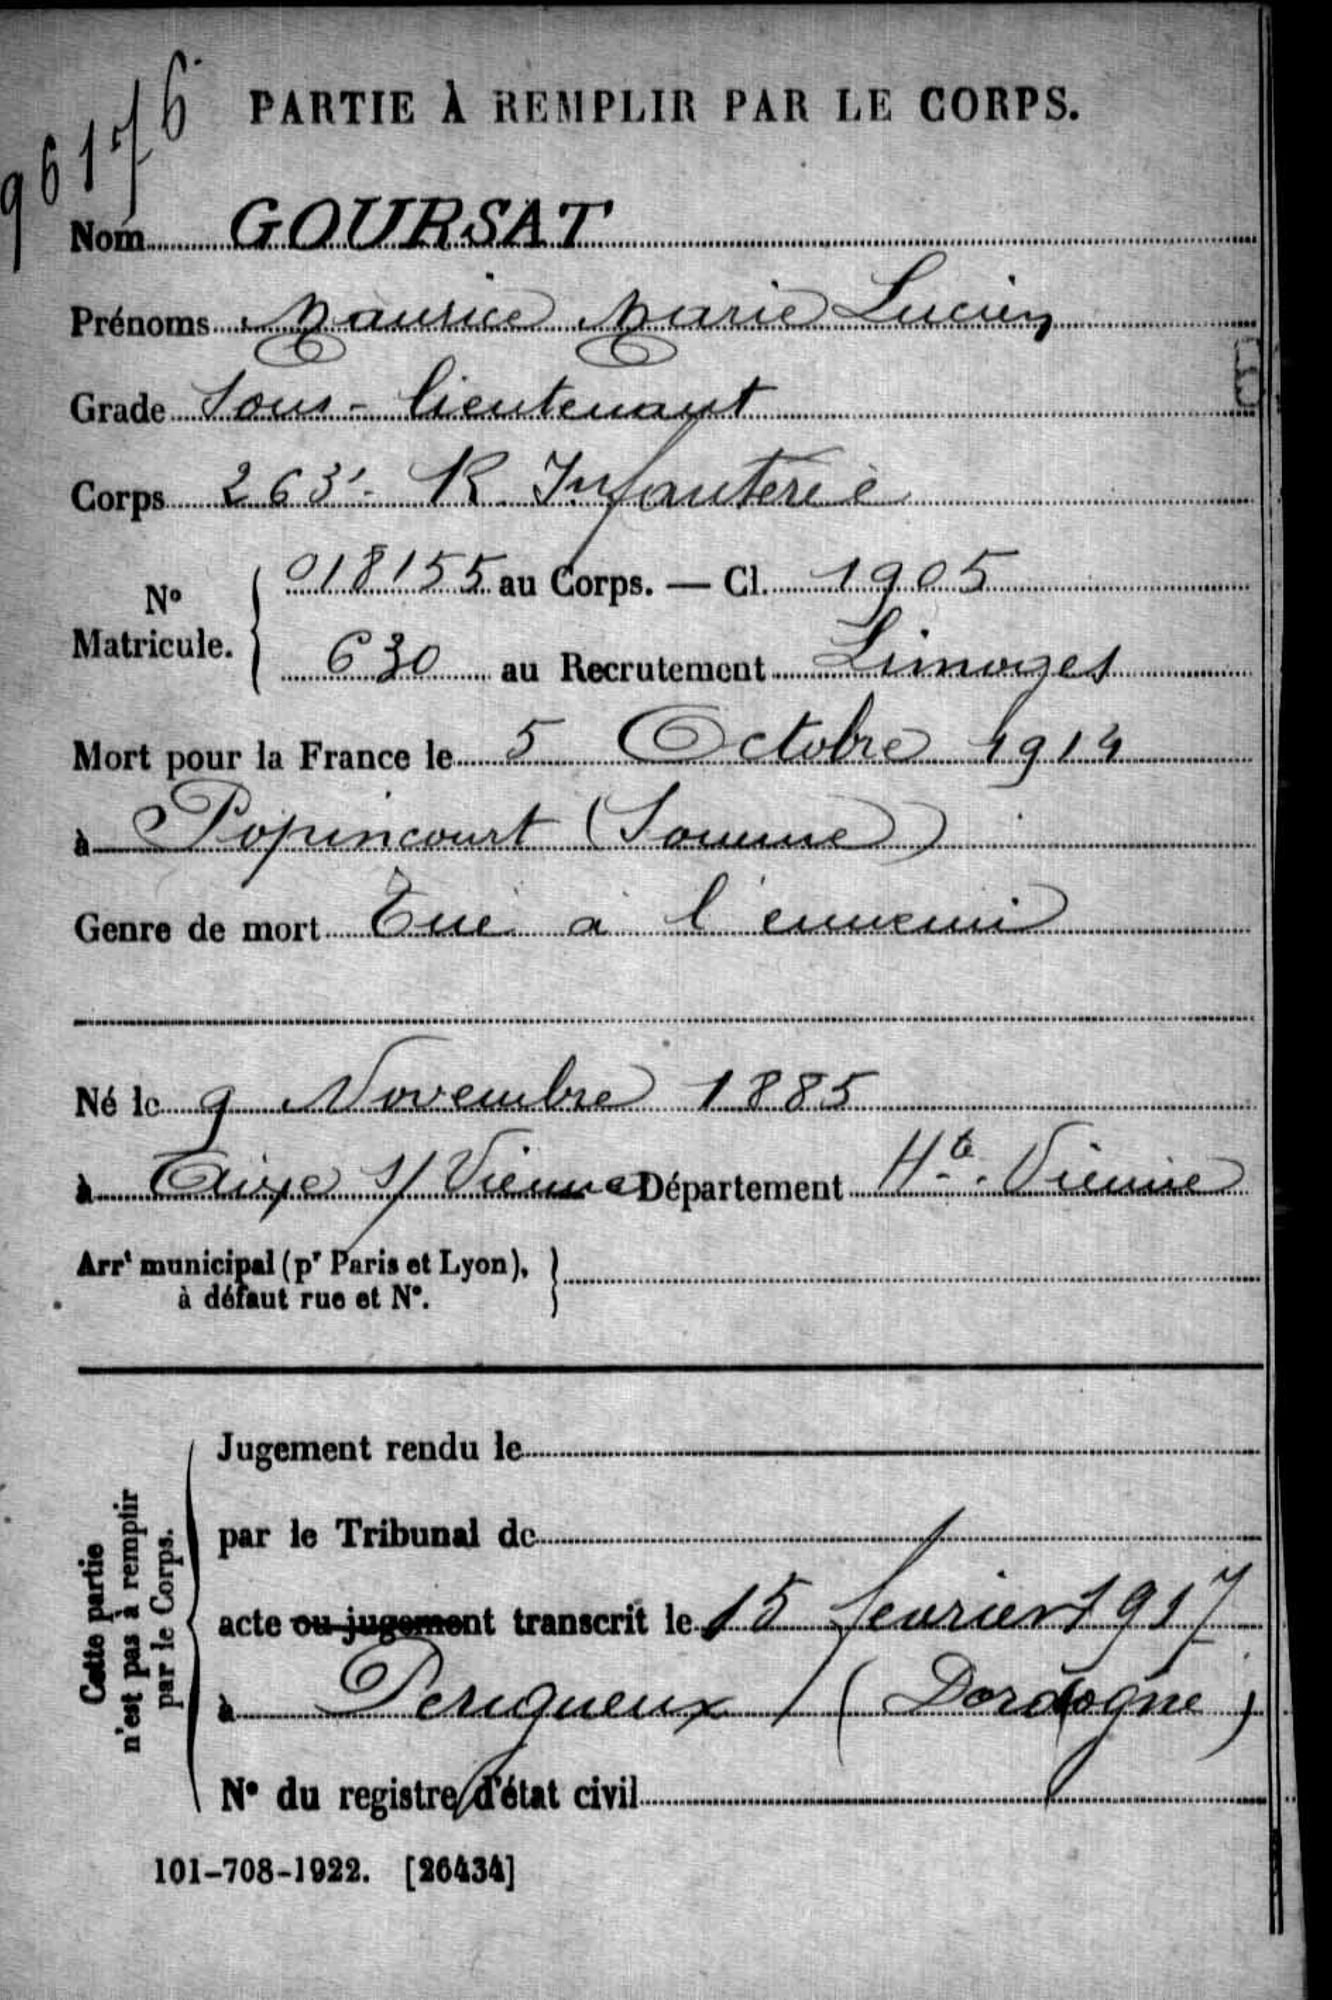 96176
PARTIE À REMPLIR PAR LE CORPS.
Nom GOURSAT
Prénoms Maurice Marie Lucien
Grade Sous-lieutenant
Corps 263e R Infanterie
N° Matricule. { 018155 au Corps. — Cl. 1905
630 au Recrutement Limoges
Mort pour la France le 5 Octobre 1914
à Popincourt (Somme)
Genre de mort Tué à l'ennemi
Né le 9 Novembre 1885
à Aixe s/ Vienne Département Hte. Vienne
Arrt municipal (pr Paris et Lyon), }
à défaut rue et N°.
Cette partie
n'est pas à remplir
par le Corps.
Jugement rendu le
par le Tribunal de
acte ou jugement transcrit le 15 fevrier 1917
à Perigueux (Dordogne)
N° du registre d'état civil
101-708-1922. [26434]